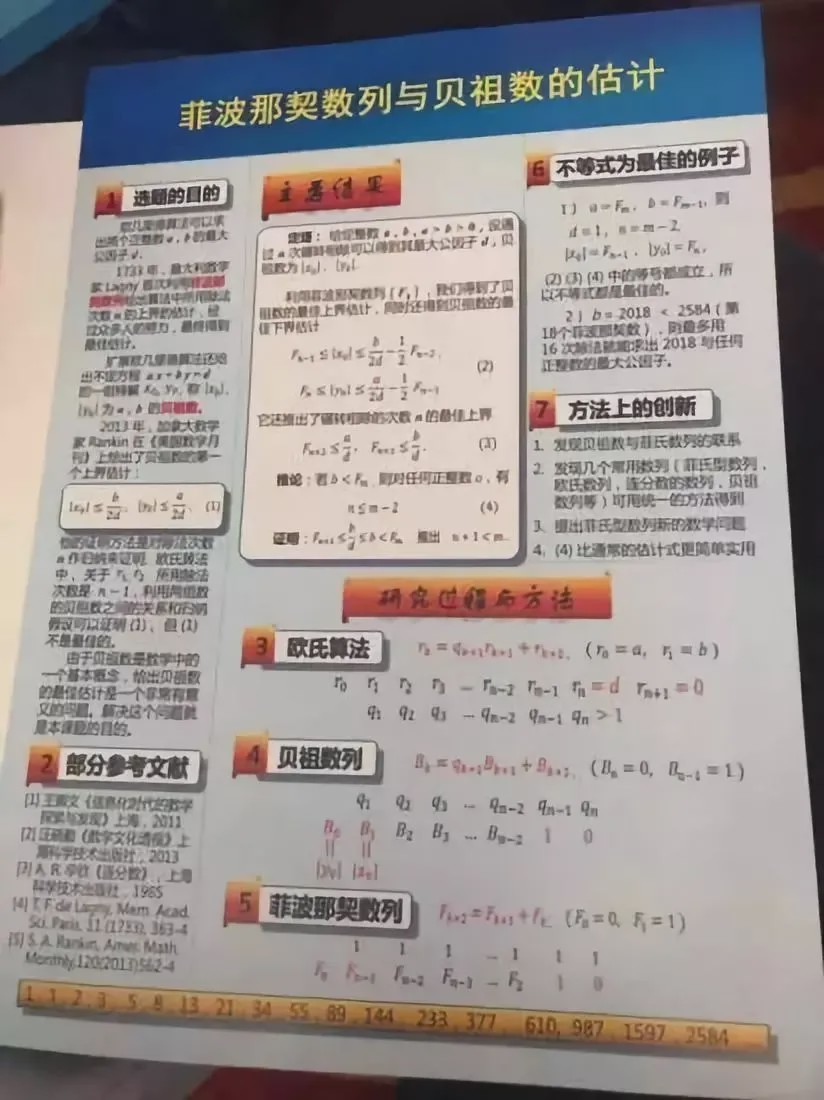 菲波那契数列与贝祖数的估计
1 选题的目的
欧几里得算法可以求
出两个正整数 a, b 的最大
公因子 d.
1733 年，意大利数学
家 Lagny 首次利用菲波那
契数列给出算法中所用除法
次数 n 的上界的估计，经
过众多人的努力，最终得到
最佳估计。
扩展欧几里得算法还给
出不定方程 ax+by=d
的一组特解 x₀, y₀, 称 |x₀|,
|y₀| 为 a, b 的贝祖数。
2013 年，加拿大数学
家 Rankin 在《美国数学月
刊》上给出了贝祖数的第一
个上界估计：
|x₀| ≤ b/2d, |y₀| ≤ a/2d, (1)
他的证明方法是对除法次数
n 作归纳来证明. 欧氏算法
中，关于 r₁, r₂ 所用除法
次数是 n-1，利用两组数
的贝祖数之间的关系和归纳
假设可以证明 (1)，但 (1)
不是最佳的。
由于贝祖数是数学中的
一个基本概念，给出贝祖数
的最佳估计是一个非常有意
义的问题。解决这个问题就
是本课题的目的。
2 部分参考文献
[1] 《信息化时代的数学
探索与发现》上海，2011
[2] 汪晓勤《数学文化透视》上
海科学技术出版社，2013
[3] A. Я. 辛钦《连分数》，上海
科学技术出版社，1965
[4] T. F. de Lagny, Mem. Acad.
Sci. Paris, 11 (1733), 363-4
[5] S. A. Rankin, Amer. Math.
Monthly,120(2013)562-4
主要结果
定理：给定整数 a, b, a > b > 0, 设通
过 n 次辗转相除可以得到其最大公因子 d，贝
祖数为 |x₀|, |y₀|.
利用菲波那契数列 {Fₖ}，我们得到了贝
祖数的最佳上界估计，同时还得到贝祖数的最
佳下界估计
Fₙ₋₁ ≤ |x₀| ≤ b/2d - 1/2 Fₙ₋₂,
(2)
Fₙ ≤ |y₀| ≤ a/2d - 1/2 Fₙ₋₁
它还推出了辗转相除的次数 n 的最佳上界
Fₙ₊₂ ≤ a/d, Fₙ₊₁ ≤ b/d. (3)
推论：若 b < Fₘ, 则对任何正整数 a, 有
n ≤ m-2 (4)
证明：Fₙ₊₁ ≤ b/d ≤ b < Fₘ 推出 n+1 < m.
6 不等式为最佳的例子
1) a=Fₘ, b=Fₘ₋₁, 则
d=1, n=m-2,
|x₀|=Fₙ₋₁, |y₀|=Fₙ,
(2) (3) (4) 中的等号都成立，所
以不等式都是最佳的。
2) b=2018 < 2584 (第
18个菲波那契数)，则最多用
16 次除法就能求出 2018 与任何
正整数的最大公因子。
7 方法上的创新
1. 发现贝祖数与菲氏数列的联系
2. 发现几个常用数列 (菲氏型数列，
欧氏数列，连分数的数列，贝祖
数列等) 可用统一的方法得到
3. 提出菲氏型数列新的数学问题
4. (4) 比通常的估计式更简单实用
研究过程与方法
3 欧氏算法 rₖ = qₖ₊₁rₖ₊₁ + rₖ₊₂, (r₀ = a, r₁ = b)
r₀ r₁ r₂ r₃ ... rₙ₋₂ rₙ₋₁ rₙ = d rₙ₊₁ = 0
q₁ q₂ q₃ ... qₙ₋₂ qₙ₋₁ qₙ > 1
4 贝祖数列 Bₖ = qₖ₊₁Bₖ₊₁ + Bₖ₊₂, (Bₙ = 0, Bₙ₋₁ = 1)
q₁ q₂ q₃ ... qₙ₋₂ qₙ₋₁ qₙ
B₀ B₁ B₂ B₃ ... Bₙ₋₂ 1 0
|| ||
|y₀| |x₀|
5 菲波那契数列 Fₖ₊₂ = Fₖ₊₁ + Fₖ, (F₀ = 0, F₁ = 1)
1 1 1 ... 1 1 1
Fₙ Fₙ₋₁ Fₙ₋₂ Fₙ₋₃ ... F₂ 1 0
1, 1, 2, 3, 5, 8, 13, 21, 34, 55, 89, 144, 233, 377, 610, 987, 1597, 2584